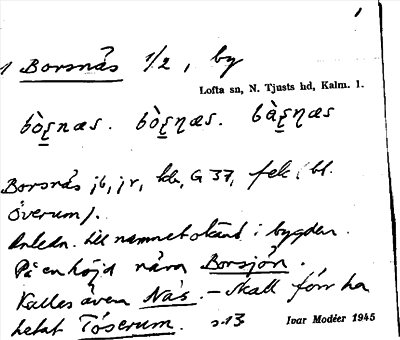 1
1 Borsnäs 1/2, by
Lofta sn, N. Tjusts hd, Kalm. l.
Borsnäs jb, jr, kb, G 37, fek (bl.
Överum).
Anledn. till namnet okänd i bygden.
På en höjd nära Borsjön.
Kallas även Näs. – Skall förr ha
hetat Töserum. s. 13 Ivar Modéer 1945